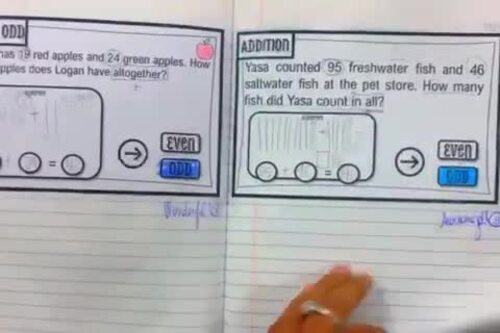 ODD
has 19 red apples and 24 green apples. How
apples does Logan have altogether?
=
EVEN
ODD
ADDITION
Yasa counted 95 freshwater fish and 46
saltwater fish at the pet store. How many
fish did Yasa count in all?
+ =
EVEN
ODD